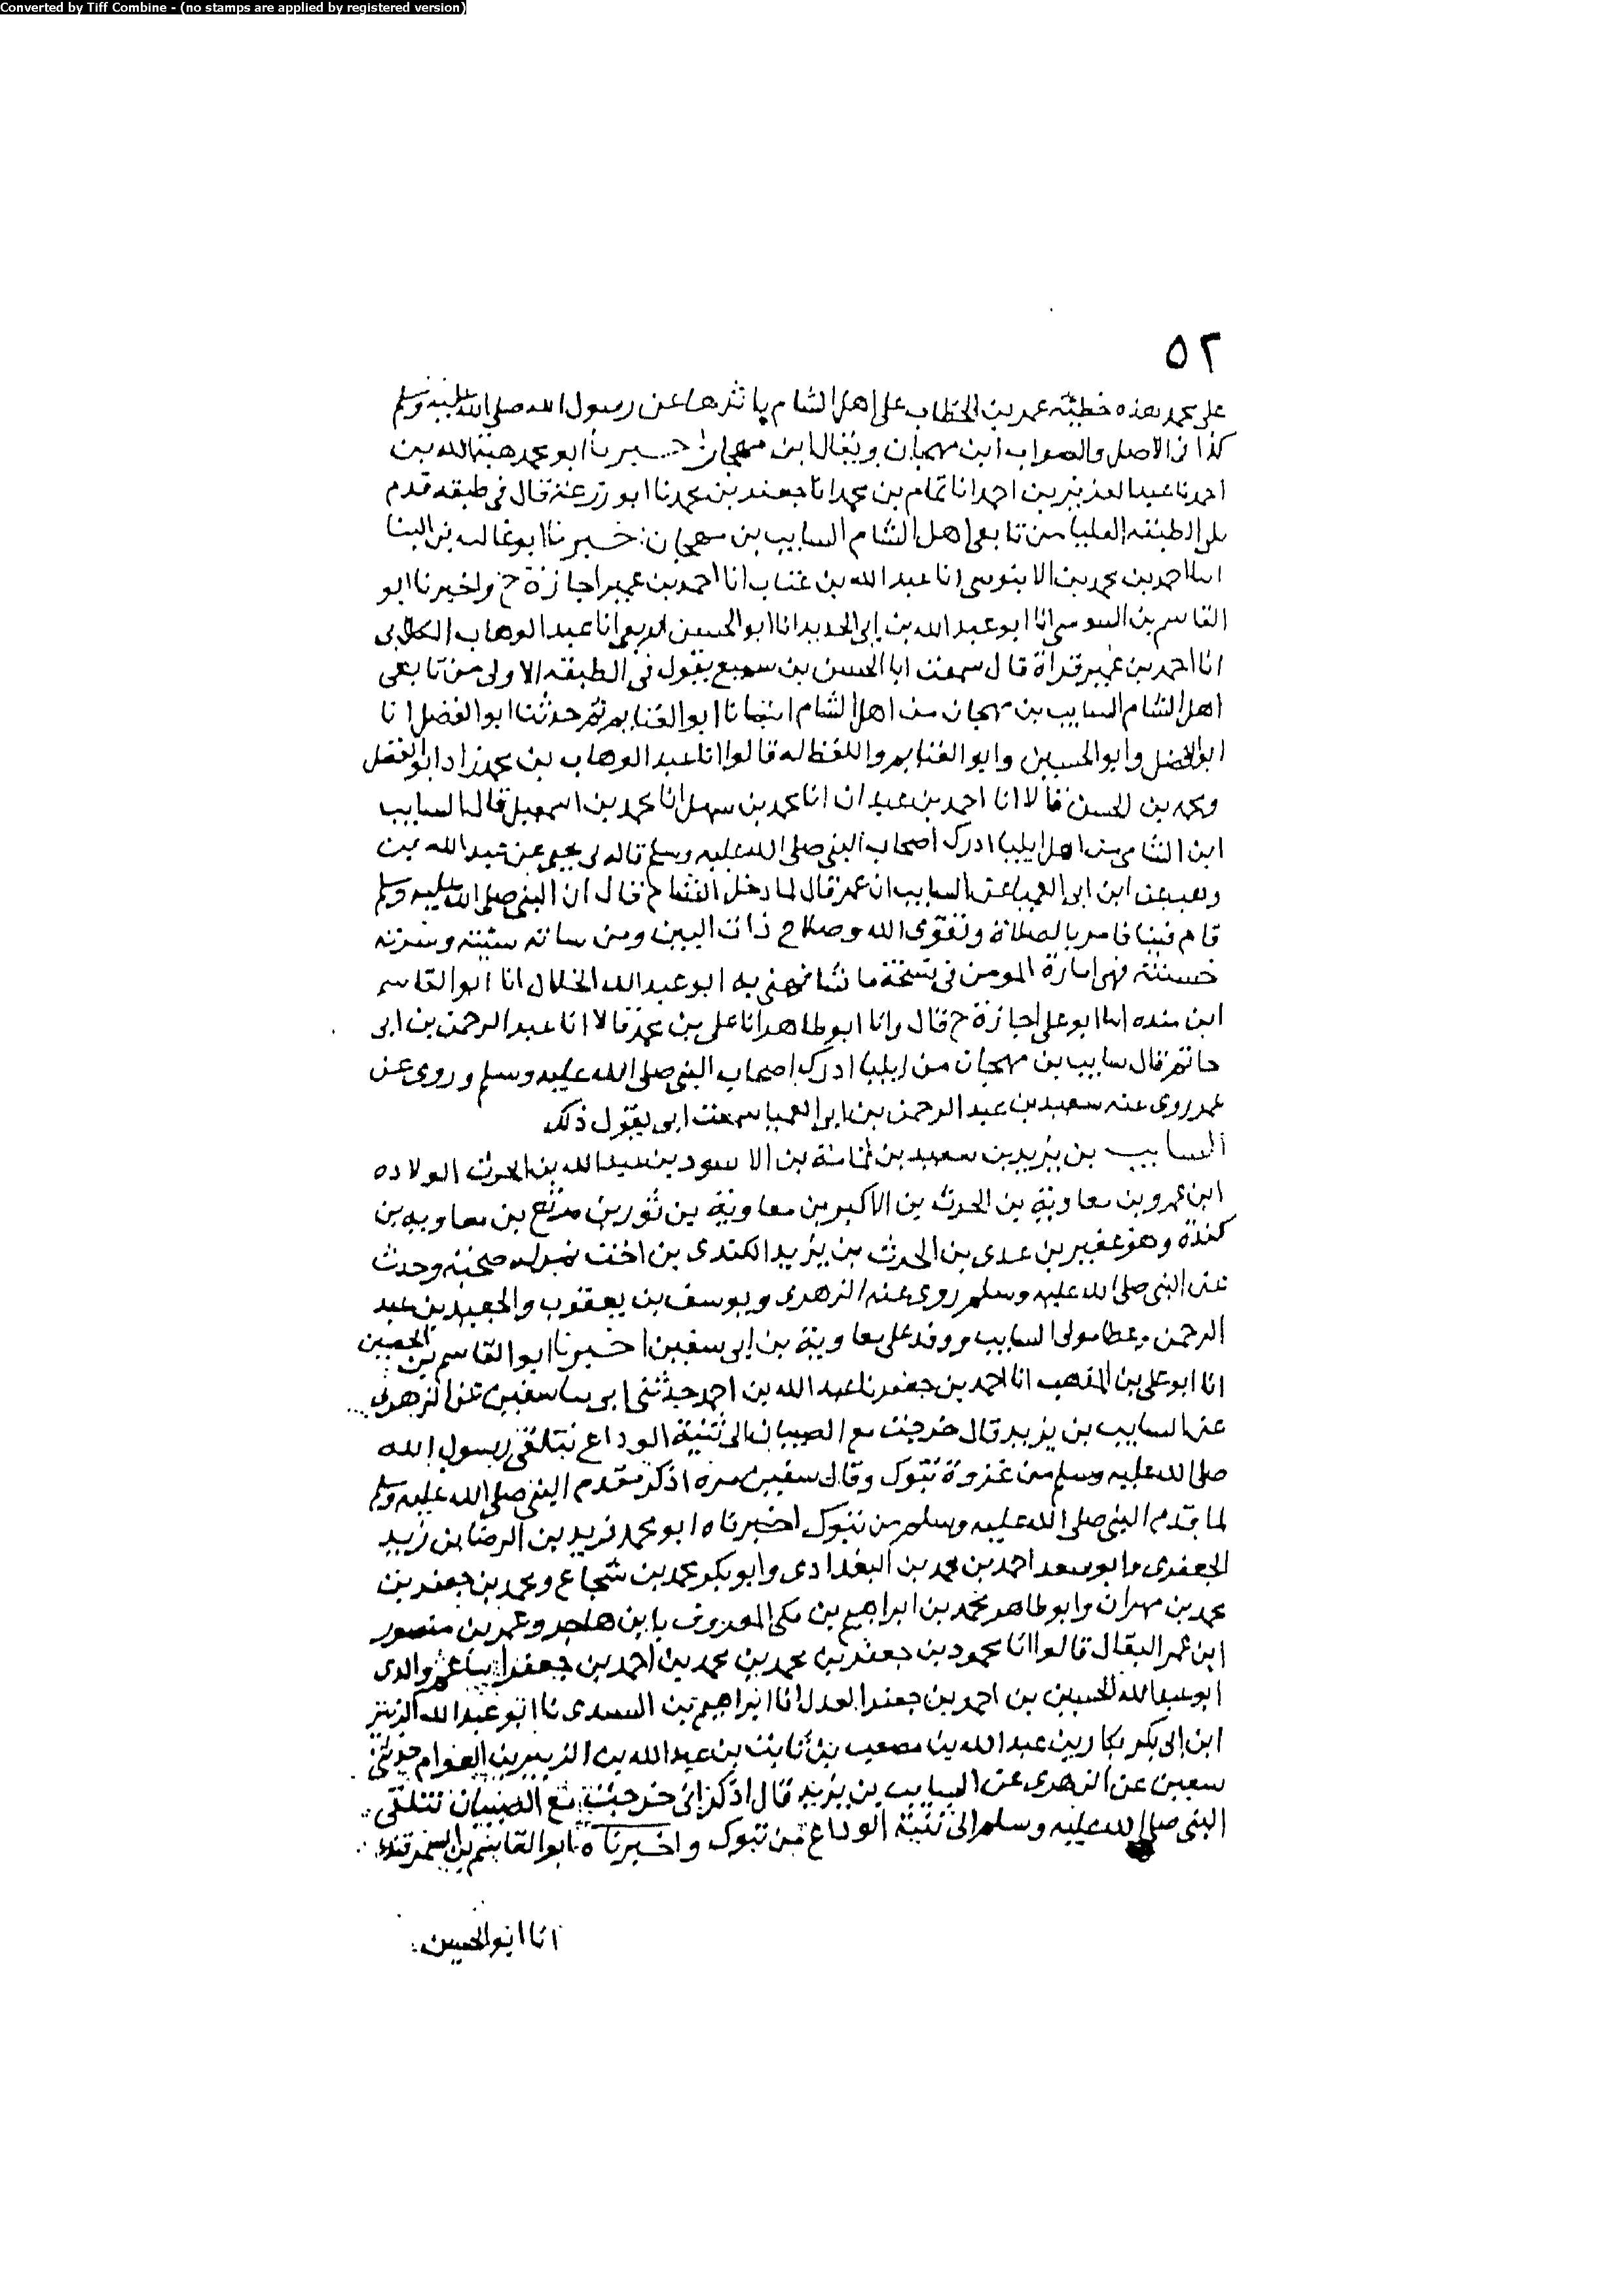 Converted by Tiff Combine - (no stamps are applied by registered version)
٥٢
على محمد هذه خطبة عمر بن الخطاب على اهل الشام ياثرها عن رسول الله صلى الله عليه وسلم
كذا في الاصل والصواب ابن مهجان ويقال ابن مهجان اخبرنا ابو محمد هبة الله بن
احمد نا عبد العزيز بن احمد انا تمام بن محمد انا جعفر بن محمد نا ابو زرعة قال في طبقة قدم
على الطبقه العليا من تابعي اهل الشام السايب بن مهجان اخبرنا ابو غالب بن البنا
انا احمد بن محمد بن الابنوسي انا عبد الله بن عتاب انا احمد بن عمير اجازة ح واخبرنا ابو
القاسم بن السوسي انا ابو عبد الله بن ابي الحديد انا ابو الحسين الربعي انا عبد الوهاب الكلابي
انا احمد بن عمير قراة قال سمعت ابا الحسن بن سميع يقول في الطبقه الاولى من تابعي
اهل الشام السايب بن مهجان من اهل الشام انبانا ابو الغنايم ثم حدثنا ابو الفضل انا
ابو الفضل وابو الحسين وابو الغنايم واللفظ له قالوا انا عبد الوهاب بن محمد زاد ابو الفضل
ومحمد بن الحسن قالا انا احمد بن عبدان انا محمد بن سهل انا محمد بن اسمعيل قال السايب
ابن الشامي من اهل ايليا ادرك اصحاب النبي صلى الله عليه وسلم قاله لي يحيى عن عبد الله بن
وهب عن ابن ابي العميا عن السايب ان عمر قال لما دخل الشام قال ان النبي صلى الله عليه وسلم
قام فينا فامر بالصلاة وتقوى الله وصلاح ذات البين ومن ساته سيئته وسرته
حسنته فهي امارة المومن في نسخة ما شافهني به ابو عبد الله الخلال انا ابو القاسم
ابن منده انا ابو علي اجازة ح قال وانا ابو طاهر انا علي بن محمد قالا انا عبد الرحمن بن ابي
حاتم قال سايب بن مهجان من ايليا ادرك اصحاب النبي صلى الله عليه وسلم وروى عن
عمر روى عنه سعيد بن عبد الرحمن بن ابي العميا سمعت ابي يقول ذلك
السايب بن يزيد بن سعيد بن ثمامة بن الاسود بن عبد الله بن الحرث الولاده
ابن عمرو بن معاوية بن الحرث بن الاكبر بن معاوية بن ثور بن مرتع بن معاويه بن
كندة وهو عفير بن عدي بن الحرث بن يزيد الكندي بن اخت نمر له صحبة وحدث
عن النبي صلى الله عليه وسلم روى عنه الزهري ويوسف بن يعقوب والجعيد بن عبد
الرحمن وعطا مولى السايب ووفد على معاوية بن ابي سفين اخبرنا ابو القاسم بن الحصين
انا ابو علي بن المذهب انا احمد بن جعفر نا عبد الله بن احمد حدثني ابي نا سفين عن الزهري
عن السايب بن يزيد قال خرجت مع الصبيان الى ثنية الوداع نتلقى رسول الله
صلى الله عليه وسلم من غزوة تبوك وقال سفين مره اذكر مقدم النبي صلى الله عليه وسلم
لما قدم النبي صلى الله عليه وسلم من تبوك اخبرناه ابو محمد فريد بن الرضا بن زيد
الجعفري وابو سعد احمد بن محمد بن البغدادي وابو بكر محمد بن شجاع ومحمد بن جعفر بن
محمد بن مهران وابو طاهر محمد بن ابراهيم بن مكي المعروف بابن هاجر وعمر بن منصور
ابن عمر البقال قالوا انا محمود بن جعفر بن محمد بن محمد بن احمد بن جعفر انبا عم والدي
ابو عبد الله الحسين بن احمد بن جعفر العدل انا ابراهيم بن السندي نا ابو عبد الله الزبير
ابن ابي بكر بكار بن عبد الله بن مصعب بن ثابت بن عبد الله بن الزبير بن العوام حدثني
سفين عن الزهري عن السايب بن يزيد قال اذكر اني خرجت مع الصبيان نتلقى
النبي صلى الله عليه وسلم الى ثنية الوداع من تبوك واخبرناه ابو القاسم بن السمرقندي
انا ابو الحسين